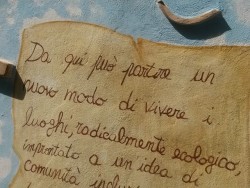 Da qui può partire un
nuovo modo di vivere i
luoghi, radicalmente ecologico,
improntato a un idea di
comunità